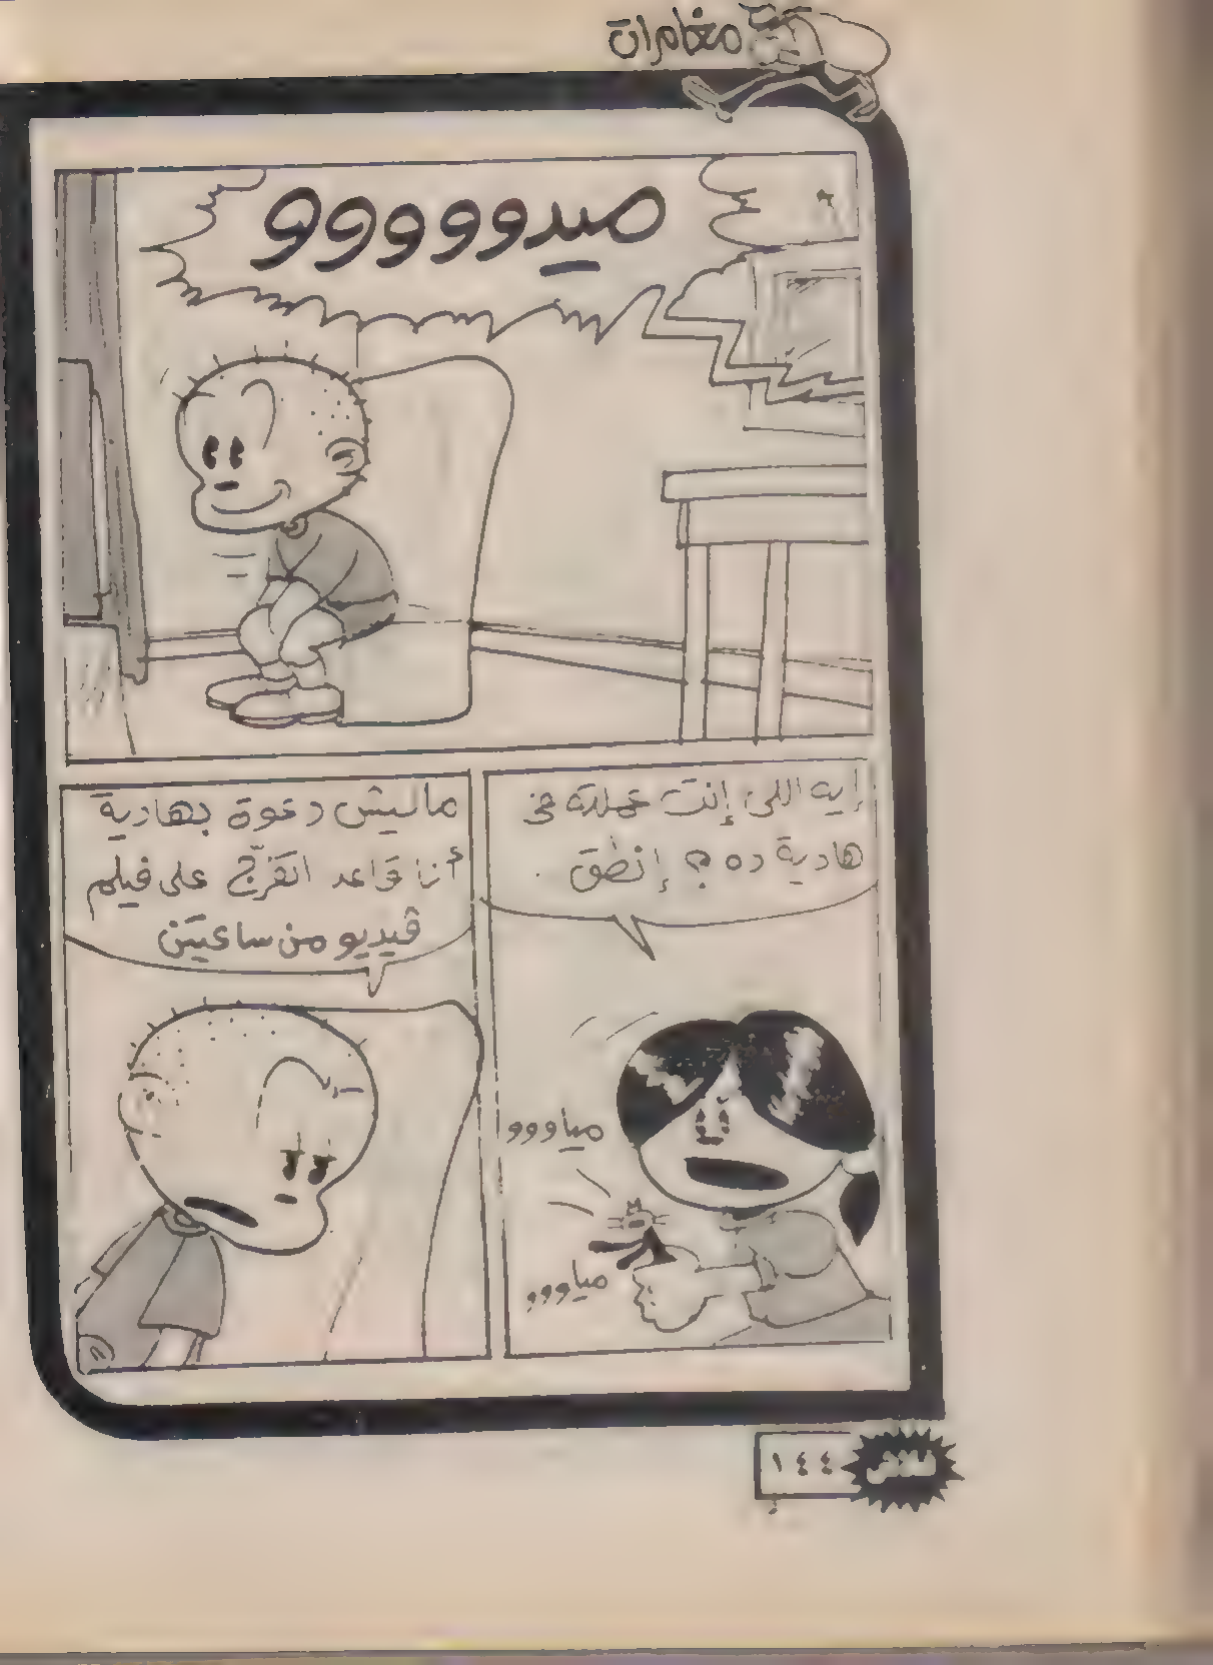 مغامرات
ميدوووووو
إيه اللى إنت عملته فى
هادية ده ؟ إنطق .
مياووو
مياووو
ماليش دعوة بهادية
أنا قاعد اتفرّج على فيلم
ڤيديو من ساعتين
فلاش
١٤٤